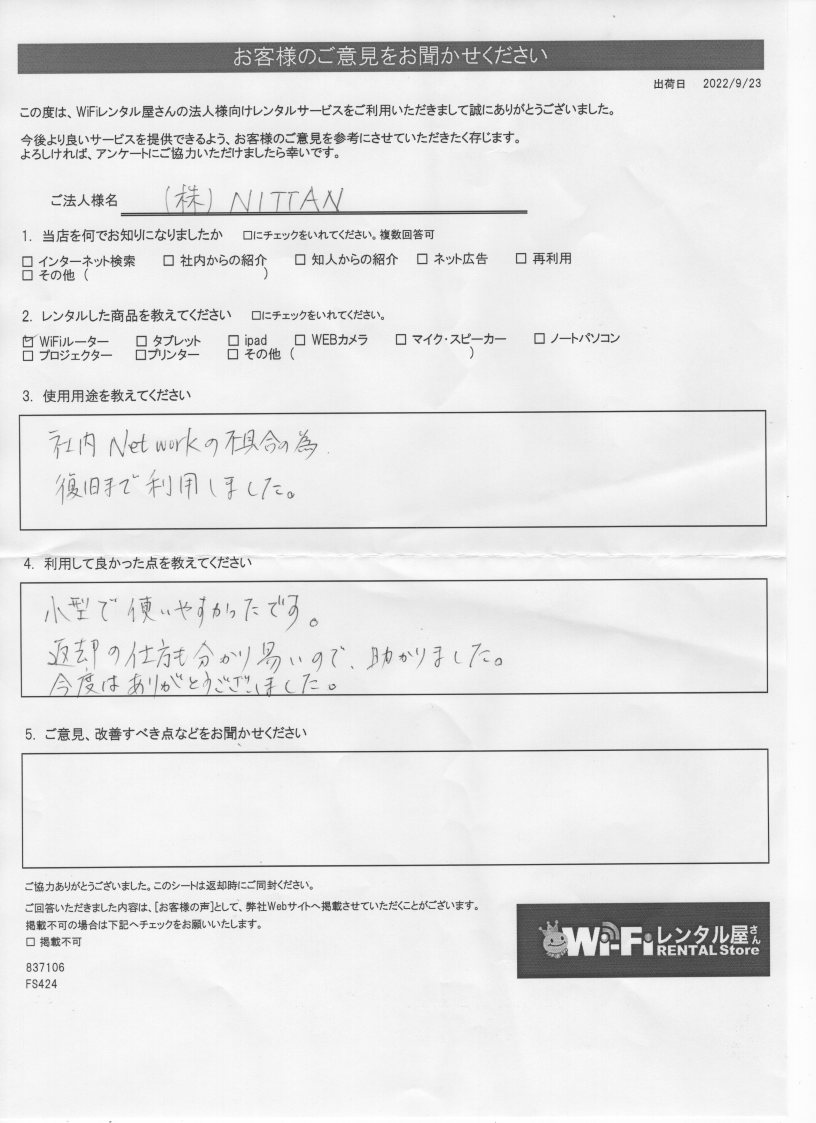 お客様のご意見をお聞かせください
出荷日 2022/9/23
この度は、WiFiレンタル屋さんの法人様向けレンタルサービスをご利用いただきまして誠にありがとうございました。
今後より良いサービスを提供できるよう、お客様のご意見を参考にさせていただきたく存じます。
よろしければ、アンケートにご協力いただけましたら幸いです。
ご法人様名 (株) NITTAN
1. 当店を何でお知りになりましたか □にチェックをいれてください。複数回答可
□ インターネット検索 □ 社内からの紹介 □ 知人からの紹介 □ ネット広告 □ 再利用
□ その他 ( )
2. レンタルした商品を教えてください □にチェックをいれてください。
☑ WiFiルーター □ タブレット □ ipad □ WEBカメラ □ マイク・スピーカー □ ノートパソコン
□ プロジェクター □プリンター □ その他 ( )
3. 使用用途を教えてください
社内 Networkの不具合の為
復旧まで利用しました。
4. 利用して良かった点を教えてください
小型で使いやすかったです。
返却の仕方も分かり易いので、助かりました。
今度はありがとうございました。
5. ご意見、改善すべき点などをお聞かせください
ご協力ありがとうございました。このシートは返却時にご同封ください。
ご回答いただきました内容は、[お客様の声]として、弊社Webサイトへ掲載させていただくことがございます。
掲載不可の場合は下記へチェックをお願いいたします。
□ 掲載不可
837106
FS424
Wi-Fiレンタル屋さん
RENTAL Store